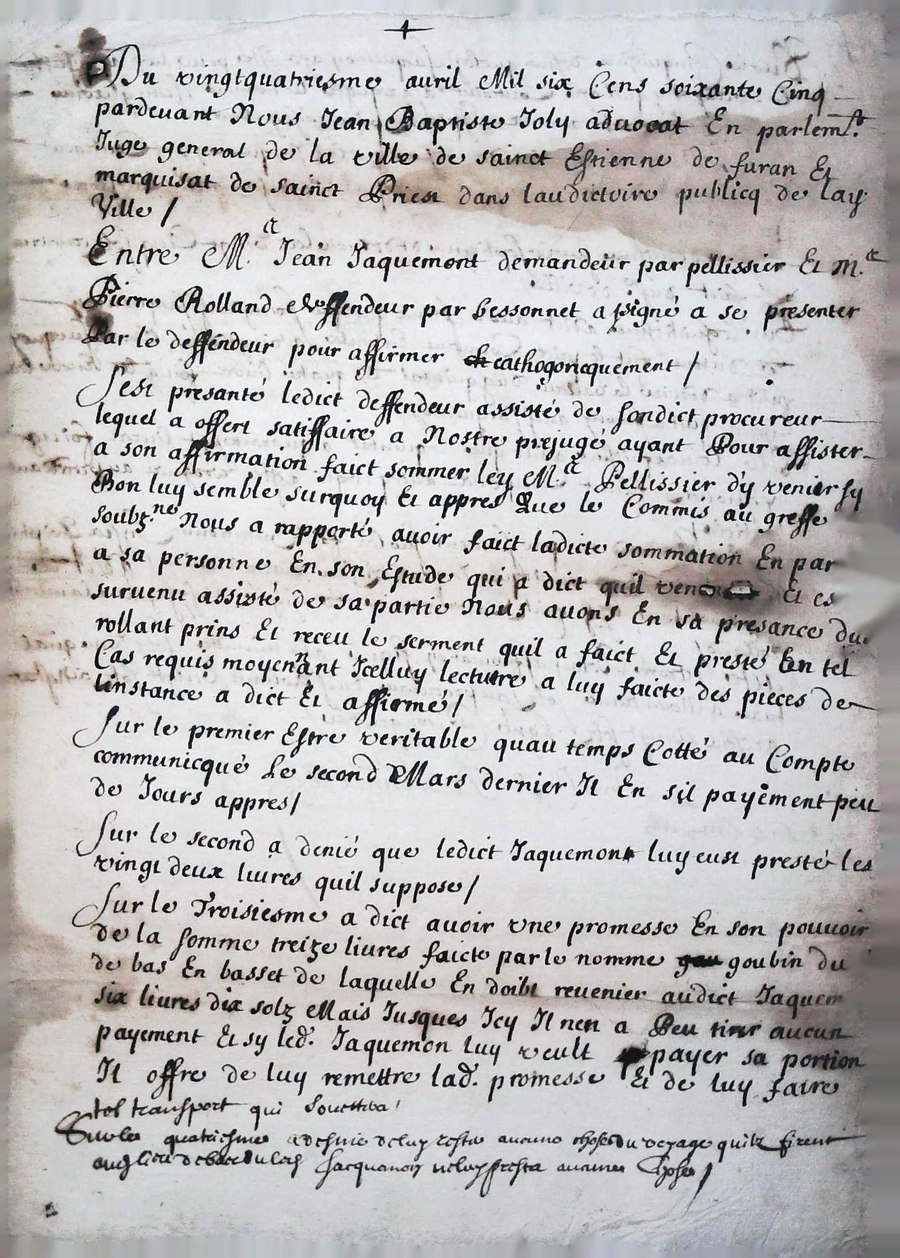 Du vingtquatriesme auril Mil six Cens soixante Cinq
pardeuant Nous Jean Baptiste Joly aduocat En parlemt.
Juge general de la ville de sainct Estienne de furan Et
marquisat de sainct Priest dans laudictoire publicq de lad.
Ville /
Entre Me. Jean Jaquemont demandeur par pellissier Et m.e
Pierre Rolland deffendeur par bessonnet assigné a se presenter
Par le deffendeur pour affirmer cathogoricquement /
Sest presanté ledict deffendeur assisté de sondict procureur
lequel a offert satiffaire a Nostre prejugé ayant Pour assister
a son affirmation faict sommer led. Me. Pellissier dy venir sy
Bon luy semble surquoy Et appres Que le Commis au greffe
soubz.ne Nous a rapporté auoir faict ladicte sommation En par
a sa personne En son Estude qui a dict quil Et es
suruenu assisté de sa partie Nous auons En sa presance du
rollant prins Et receu le serment quil a faict Et presté En tel
Cas requis moyennant Icelluy lecture a luy faicte des pieces de
linstance a dict Et affirmé /
Sur le premier Estre veritable quau temps Cotté au Compte
communicqué Le second Mars dernier Il En payement peu
de Jours appres /
Sur le second a denié que ledict Jaquemont luy eust presté les
vingt deux liures quil suppose /
Sur le Troisiesme a dict auoir vne promesse En son pouuoir
de la somme treize liures faicte par le nomme goubin du
de bas En basset de laquelle En doibt reuenier audict Jaquem
six liures dix solz Mais Jusques Icy Il nen a Peu tirer aucun
payement Et sy led. Jaquemon luy veult payer sa portion
Il offre de luy remettre lad. promesse Et de luy faire
tel transport qui
Sur le quatriesme a desnie de luy resta aucune chose du voyage quilz firent
au lieu de aucune chose /